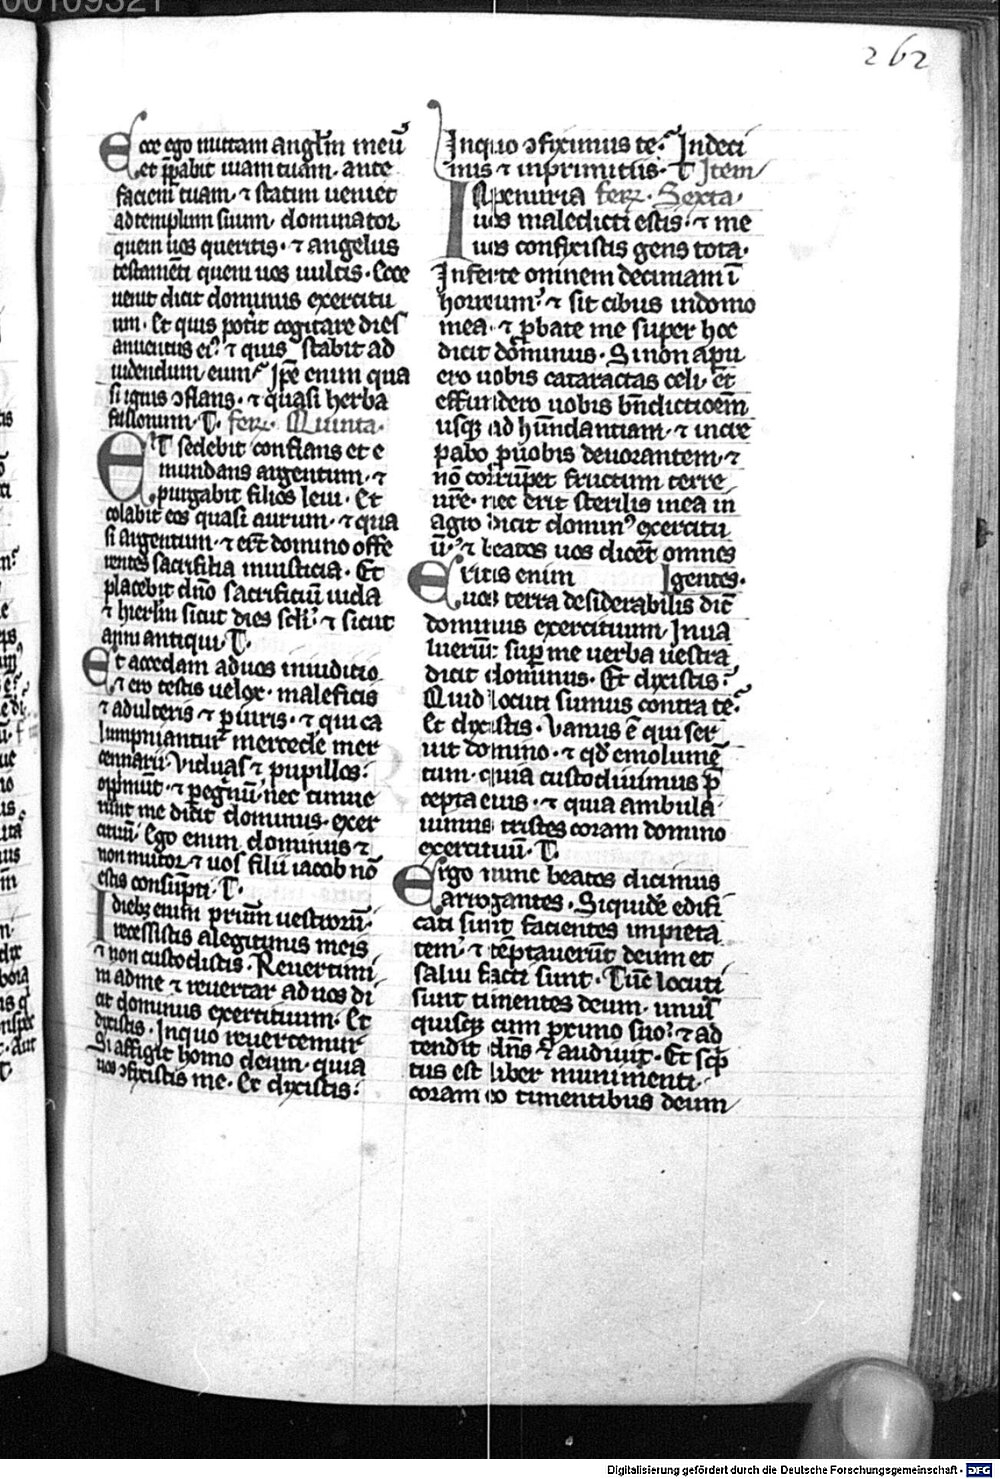 262
Ecce ego mittam angl̄m meū
et p̄pabit uiam tuam · ante
faciem tuam · ⁊ statim ueniet
ad templum suum · dominator
quem uos queritis · ⁊ angelus
testamēti quem uos uultis · Ecce
uenit dicit dominus exercitu
um · Et quis potit cogitare dies
aduentus ei⁹ ⁊ quis stabit ad
uidendum eum · Ip̄e enim qua
si ignis ↄflans · ⁊ quasi herba
fullonum · T · feꝝ · Quinta ·
ET sedebit conflans et e
mundans argentum · ⁊
purgabit filios leui · Et
colabit eos quasi aurum · ⁊ qua
si argentum · ⁊ erūt domino offe
rentes sacrificia iniusticia · Et
placebit dn̄o sacrificiū iuda
⁊ hierlm̄ sicut dies scl̄i · ⁊ sicut
anni antiqui · T ·
Et accedam ad uos iniudicio
⁊ ero testis uelox · maleficis
⁊ adulteris ⁊ ꝑiuris · ⁊ qui ca
lumpniantur mercedē mer
cennarii · Viduas ⁊ pupillos ·
opp̄mūt · ⁊ pegⁿū · nec timue
runt me dicit dominus · exer
cituū · Ego enim dominus ⁊
non mutor · ⁊ uos filii iacob nō
estis consūpti · T ·
I diebꝫ enim priūm uestrorū ·
recessistis alegitimis meis
⁊ non custodistis · Reuertimi
ni adme ⁊ reuertar ad uos di
cit dominus exercituum · Et
dixistis · Inquo reuertemur
Si affigit homo deum · quia
uos ↄfixistis me · Et dixistis ·
Inquo ↄfiximus te · Indeci
mis ⁊ inprimitiis · T Item
IN penuria feꝝ · Sexta ·
uos maledicti estis · ⁊ me
uos confixistis gens tota ·
Inferte omnem decimam ī
horreum · ⁊ sit cibus indomo
mea · ⁊ ꝓbate me super hoc
dicit dominus · Si non apu
ero uobis cataractas celi · et
effundero uobis bn̄dictioēm
usqꝫ ad hūndantiam · ⁊ incre
pabo ꝓ uobis deuorantem · ⁊
nō corrūpet fructum terre
ur̄e · nec erit sterilis inea in
agro dicit domin⁹ exercitu
ū · ⁊ beatos uos dicēt omnes
Eritis enim gentes ·
uos terra desiderabilis dic̄
dominus exercituum · Inua
luerūt sup me uerba uestra
dicit dominus · Et dixistis ·
Quid locuti sumus contra te ·
Et dixistis · Vanus ē qui ser
uit domino · ⁊ qd̄ emolumē
tum · quia custodiuimus p̄
cepta eius · ⁊ quia ambula
uimus tristes coram domino
exercituū · T ·
Ergo nunc beatos dicimus
arrogantes · Siquidē edifi
cati sunt facientes impieta
tem · ⁊ tēptauerūt deum et
salui facti sunt · Tūc locuti
sunt timentes deum · unus
quisqꝫ cum proximo suo · ⁊ ad
tendit dn̄s ⁊ audiuit · Et scp̄
tus est liber munimenti ·
coram eo timentibus deum
Digitalisierung gefördert durch die Deutsche Forschungsgemeinschaft - DFG